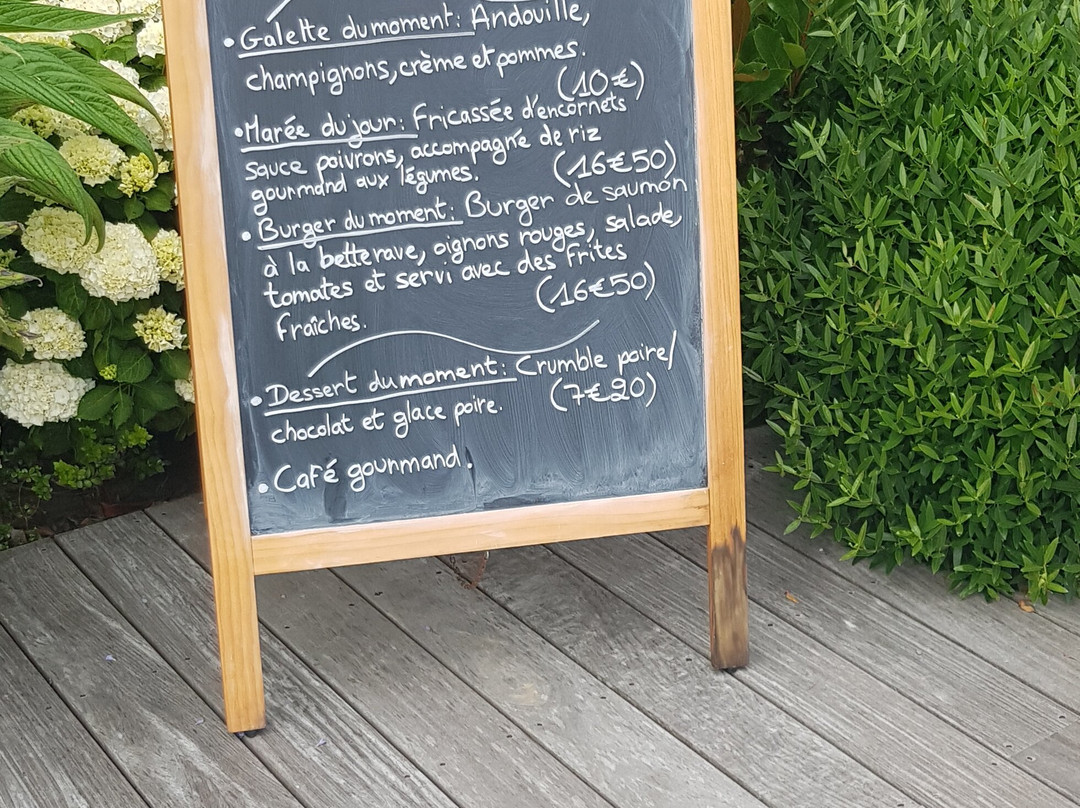 • Galette du moment : Andouille,
champignons, crème et pommes.
(10 €)
• Marée du jour : Fricassée d'encornets
sauce poivrons, accompagné de riz
gourmand aux légumes.
(16€50)
• Burger du moment : Burger de saumon
à la betterave, oignons rouges, salade,
tomates et servi avec des frites
fraîches.
(16€50)
• Dessert du moment : Crumble poire/
chocolat et glace poire.
(7€20)
• Café gourmand.